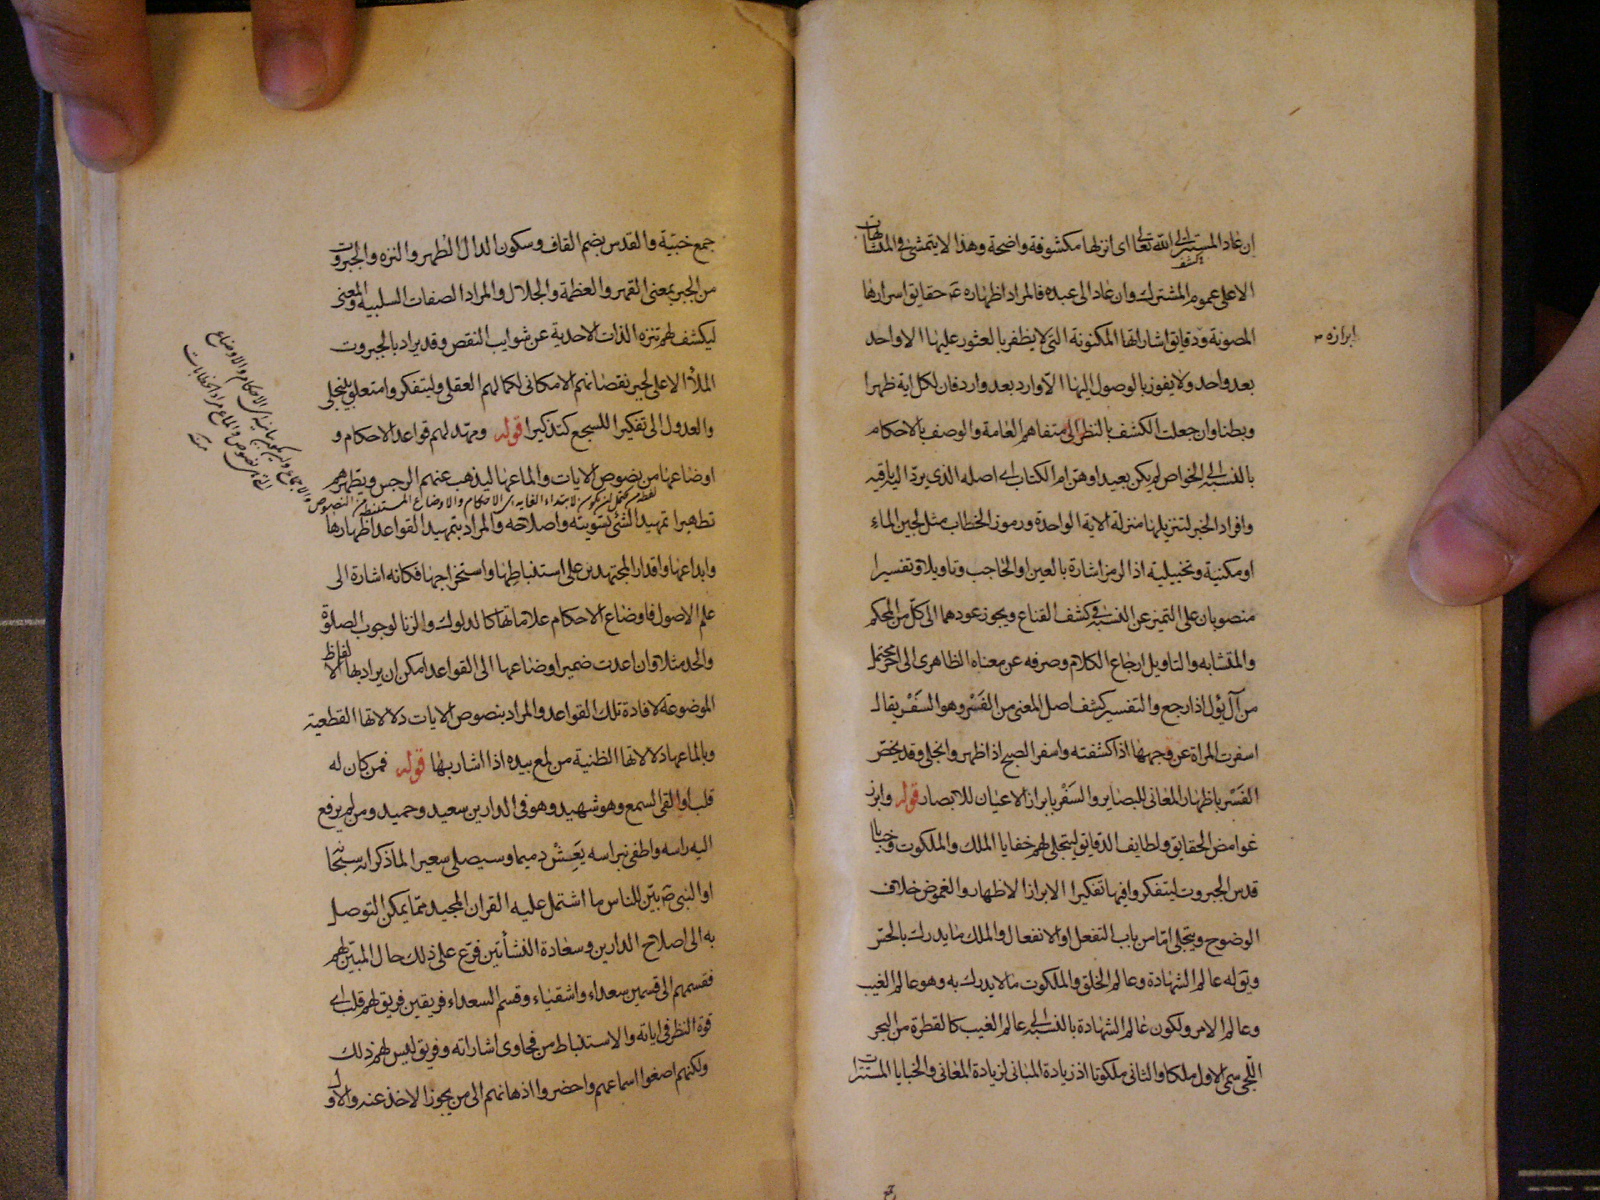 ان عاد المستتر الى الله تعالى اى انزلها مكشوفة واضحة وهذا لا يتمشى فى المتشابهات
الا على عموم المشترك وان عاد الى عبده فالمراد اظهاره عم حقايق اسرارها
المصونة ودقايق اشاراتها المكنونة التى لا يظفر بالعثور عليها الا واحد
بعد واحد ولا يفوز بالوصول اليها الا وارد بعد وارد فان لكل اية ظهرا
وبطنا وان جعلت الكشف بالنظر الى متفاهم العامة والوصف بالاحكام
بالنسبة الى الخاص لم يكن بعيدا وهن ام الكتاب اى اصله الذى يرد اليه باقيه
وافراد الخبر لتنزيلها منزلة الاية الواحدة ورموز الخطاب مثل لجين الماء
او مكنية وتخييلية اذ الرمز اشارة بالعين او الحاجب وتاويلا وتفسيرا
منصوبان على التميز عن النسبة فى كشف القناع ويجوز عودهما الى كل من المحكم
والمتشابه والتاويل ارجاع الكلام وصرفه عن معناه الظاهرى الى اخر محتمل
من آل يؤل اذا رجع والتفسير كشف اصل المعنى من الفَسْر وهو السَفْر يقال
اسفرت المراة عن وجهها اذا كشفته واسفر الصبح اذا ظهر وانجلى وقد يخص
الفَسْر باظهار المعانى للبصاير والسَفْر بابراز الاعيان للابصار قوله وابرز
غوامض الحقايق ولطايف الدقايق ليتجلى لهم خفايا الملك والملكوت وخبايا
قدس الجبروت ليتفكروا فيها تفكيرا الابراز الاظهار والغموض خلاف
الوضوح ويتجلى اما من باب التفعل او الانفعال والملك ما يدرك بالحس
ويق له عالم الشهادة وعالم الخلق والملكوت ما لا يدرك به وهو عالم الغيب
وعالم الامر ولكون عالم الشهادة بالنسبة الى عالم الغيب كالقطرة من البحر
اللجى سمى الاول ملكا والثانى ملكوتا اذ زيادة المبانى لزيادة المعانى والخبايا المستترات
ابرازه
جمع خبيّة والقدس بضم القاف وسكون الدال الطهر والنزه والجبروت
من الجبر بمعنى القهر والعظمة والجلال والمراد الصفات السلبية والمعنى
ليكشف لهم تنزه الذات الاحدية عن شوايب النقص وقد يراد بالجبروت
الملأ الاعلى لجبر نقصانهم الامكانى بكمالهم العقلى وليتفكروا متعلق بليتجلى
والعدول الى تفكيرا للسجع كتذكيرا قوله ومهّد لهم قواعد الاحكام و
اوضاعها من نصوص الايات والماعها ليذهب عنهم الرجس ويطهرهم
لفظ من يحتمل ان يكون لابتداء الغاية اى الاحكام والاوضاع المستنبطة من النصوص
تطهيرا تمهيد الشئ تسويته واصلاحه والمراد بتمهيد القواعد اظهارها
وابداعها واقدار المجتهدين على استنباطها واستخراجها فكانه اشارة الى
علم الاصول فاوضاع الاحكام علاماتها كالدلوك والزنا لوجوب الصلوة
والحد مثلا وان اعدت ضمير اوضاعها الى القواعد امكن ان يراد بها الالفاظ
الموضوعة لافادة تلك القواعد والمراد بنصوص الايات دلالاتها القطعية
وبالماعها دلالاتها الظنية من لمع بيده اذا اشار بها قوله فمن كان له
قلب او القى السمع وهو شهيد وهو فى الدارين سعيد وحميد ومن لم يرفع
اليه راسه واطفى نبراسه يعَِشْ ذميما وسيصلى سعيرا لما ذكر انه سبحانه
او النبى ص بيّن للناس ما اشتمل عليه القران المجيد مما يمكن التوصل
به الى اصلاح الدارين وسعادة النشأتين فرّع على ذلك حال المبيّن لهم
فقسمهم الى قسمين سعداء واشقياء وقسم السعداء فريقين فريق لهم قلب اى
قوة النظر فى اياته والاستنباط من فحاوى اشاراته وفريق ليس لهم ذلك
ولكنهم اصغوا اسماعهم واحضروا اذهانهم الى من يجوز الاخذ عنه والاول